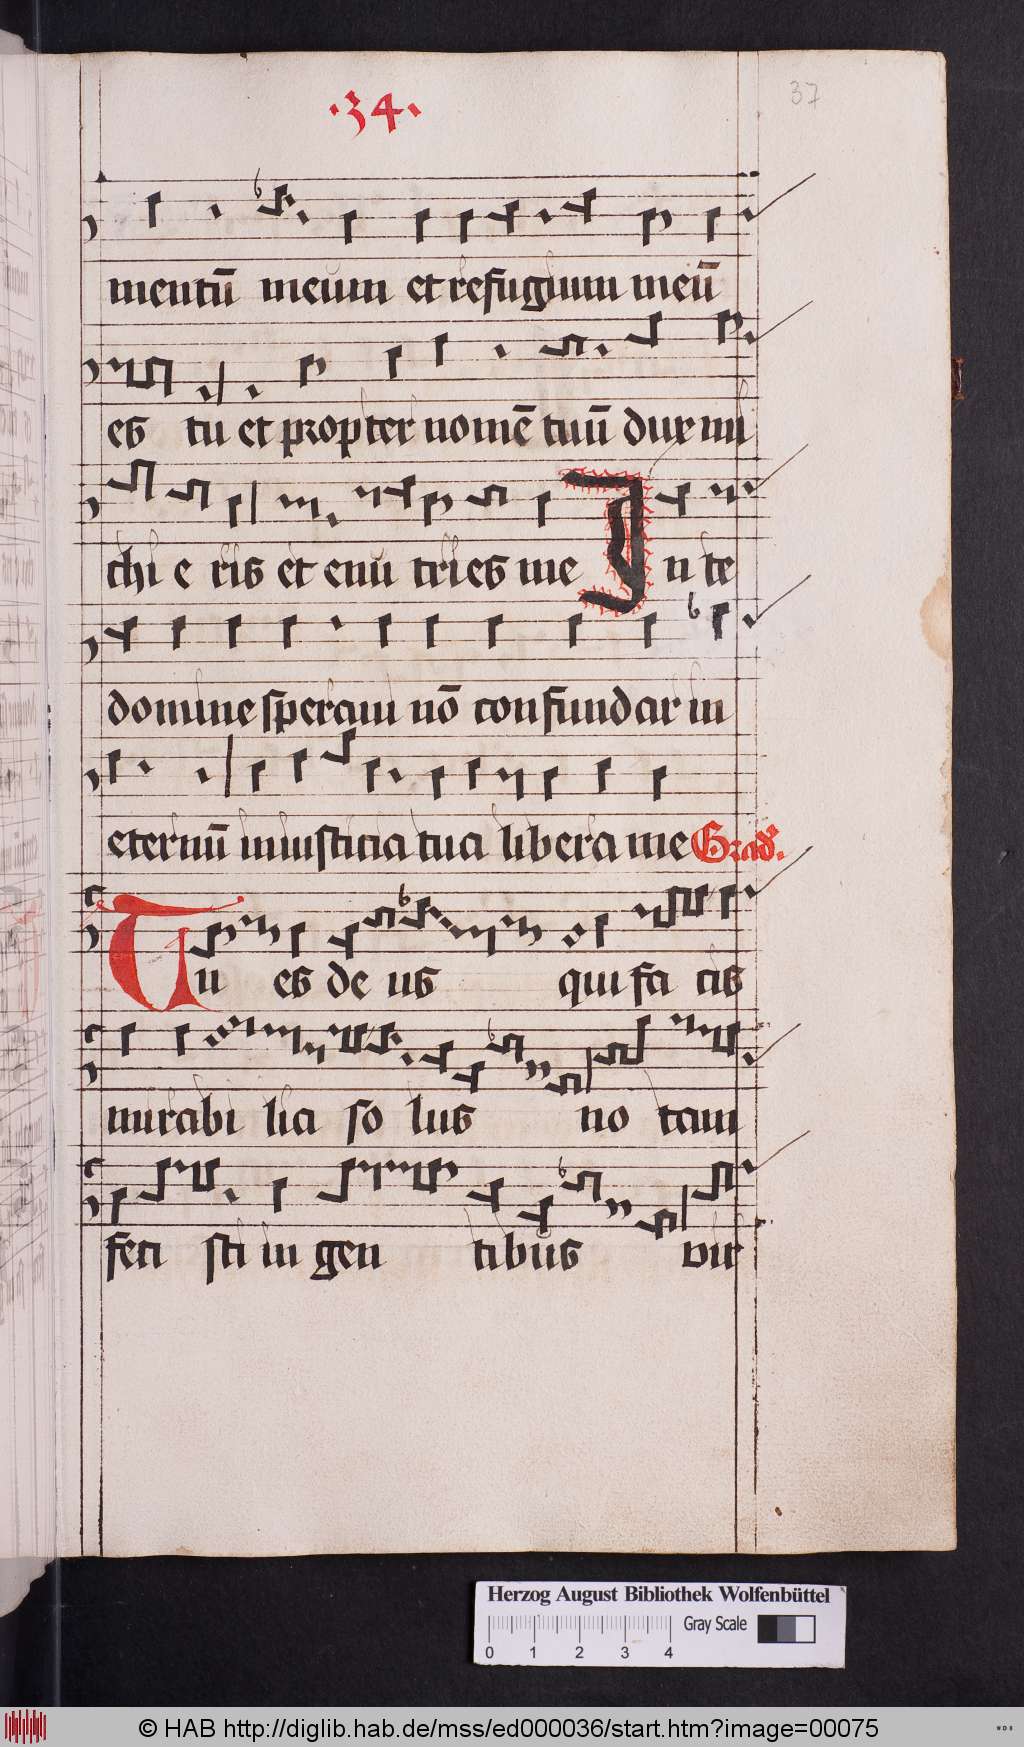 ·34·
37
mentū meum et refugium meū
es tu et propter nomē tuū dux mi
chi e ris et enu tries me In te
domine speraui nō confundar in
eternū in iusticia tua libera me Grad̉.
Tu es de us qui fa cis
mirabi lia so lus no tam
feci sti in gen tibus vir
Herzog August Bibliothek Wolfenbüttel
Gray Scale
0 1 2 3 4
© HAB http://diglib.hab.de/mss/ed000036/start.htm?image=00075
WDB